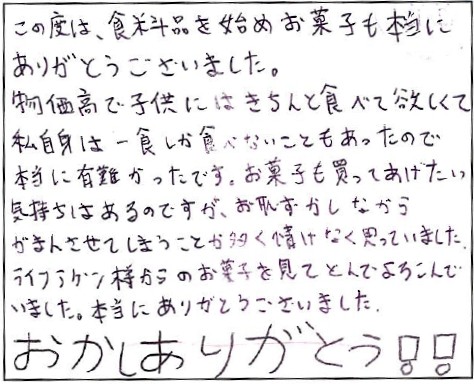 この度は、食料品を始めお菓子も本当に
ありがとうございました。
物価高で子供にはきちんと食べて欲しくて
私自身は一食しか食べないこともあったので
本当に有難かったです。お菓子も買ってあげたい
気持ちはあるのですが、お恥ずかしながら
がまんさせてしまうことが多く情けなく思っていました。
ライフラゲン様からのお菓子を見てとんでよろこんで
いました。本当にありがとうございました。
おかしありがとう!!